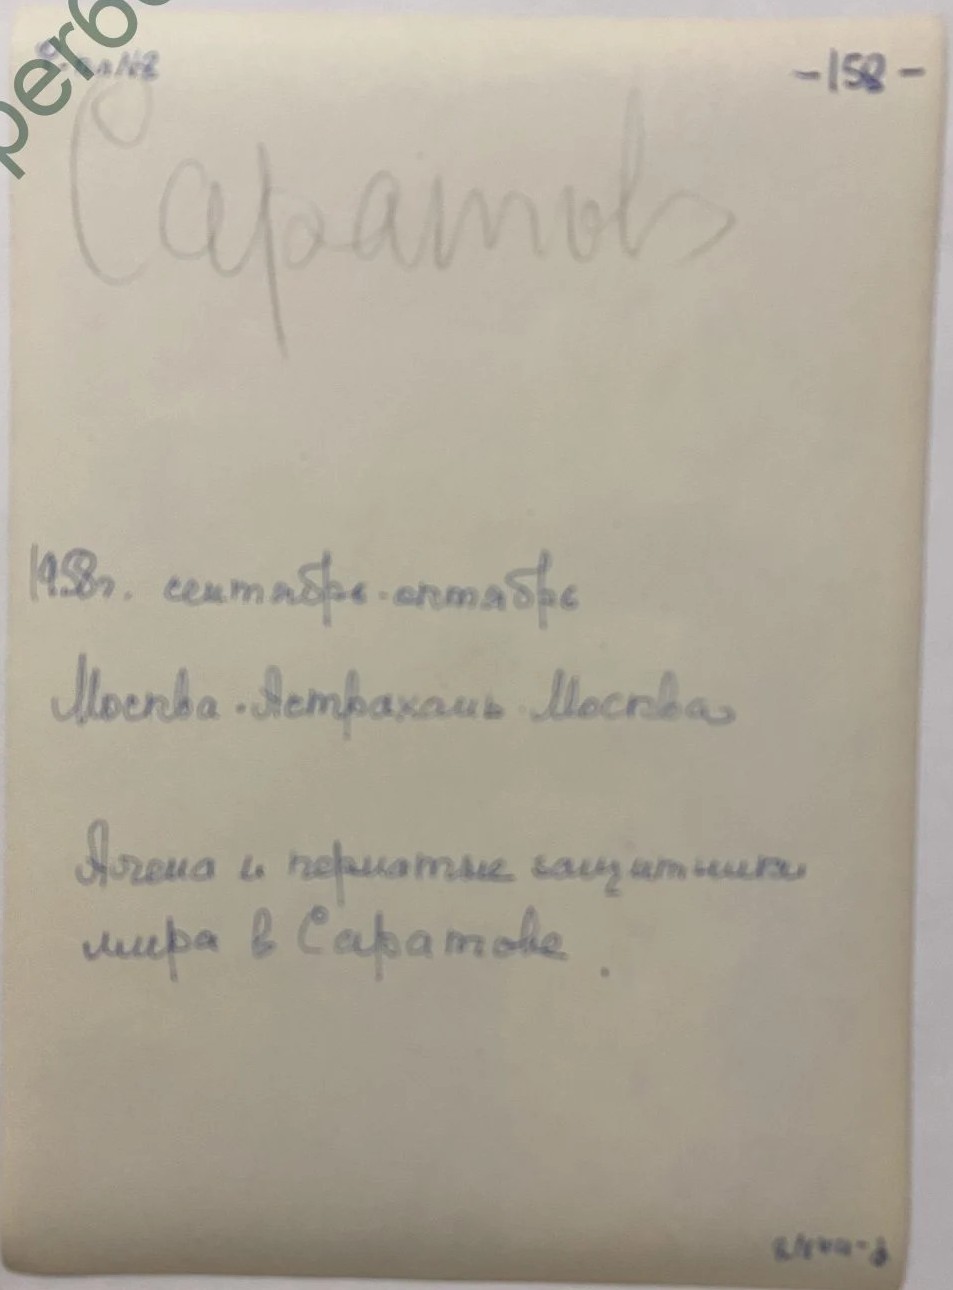 -158-
Саратов
1958г. сентябрь-октябрь
Москва-Астрахань-Москва
и пернатые защитники
мира в Саратове.